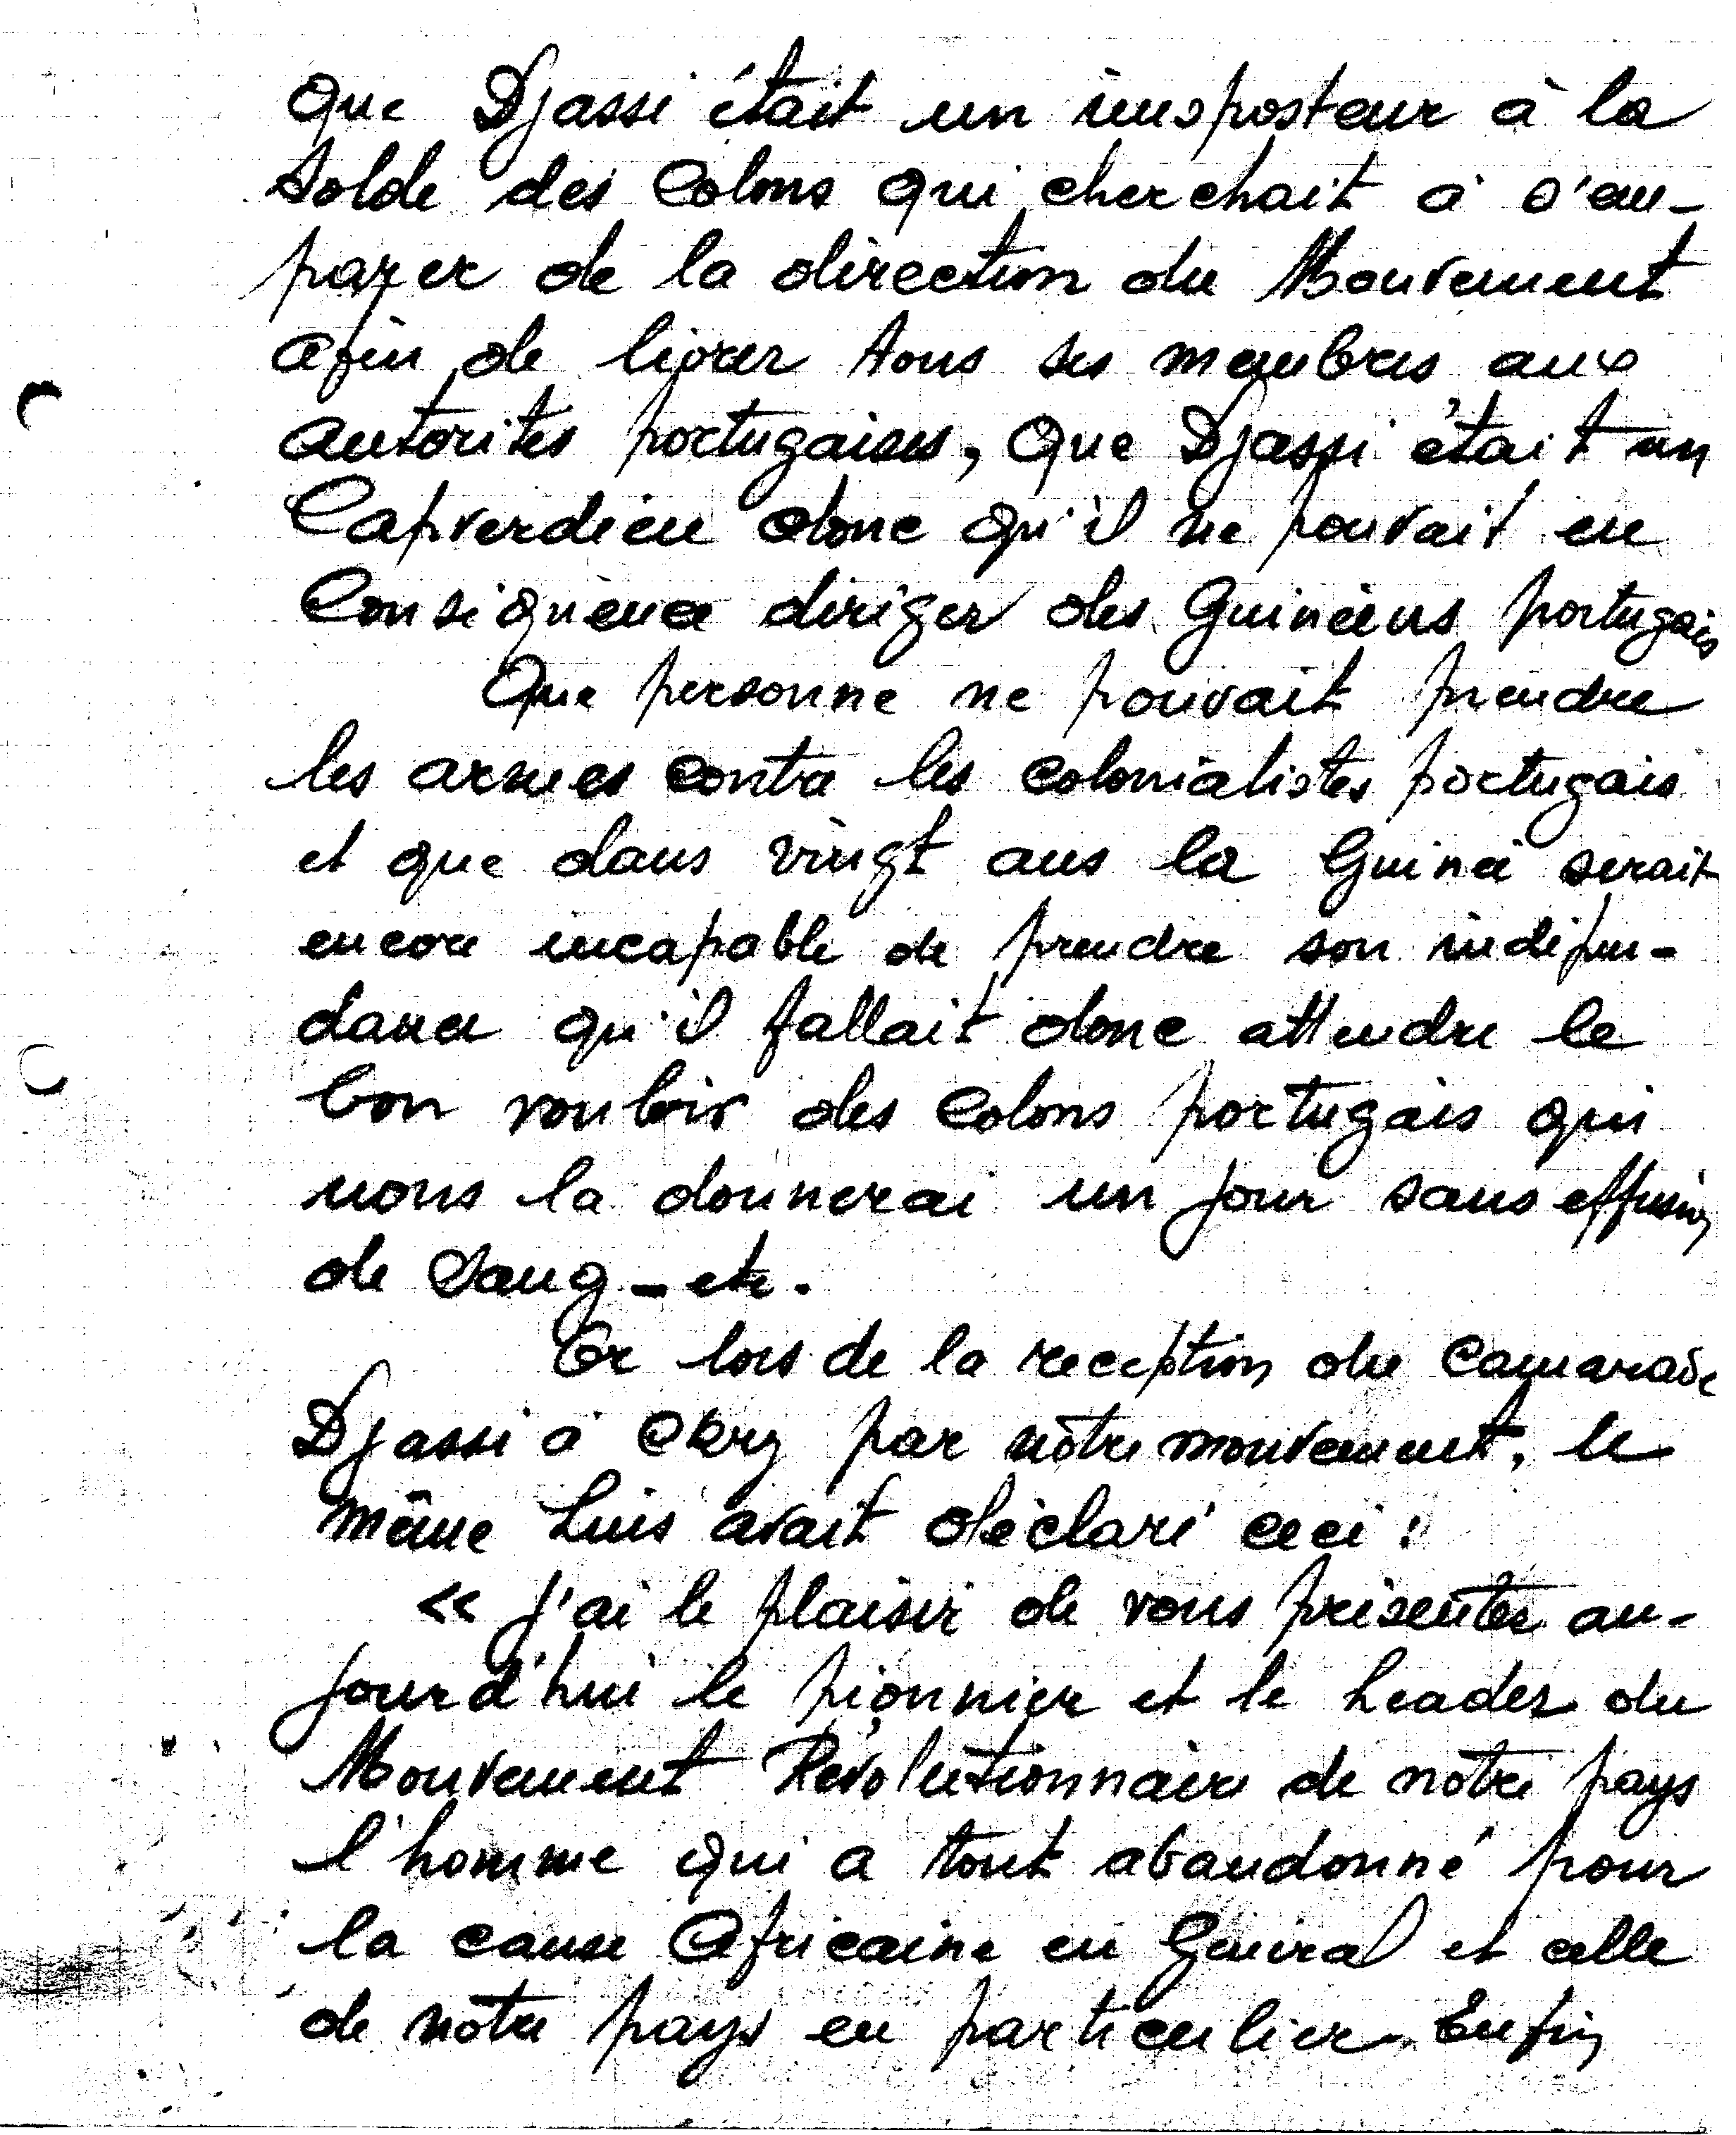 Que Djassi était un imposteur à la
solde des Colons qui cherchait à s'em-
parer de la direction du Mouvement
afin de livrer tous ses membres aux
autorités portugaises, Que Djassi était un
Capverdien donc qu'il ne pouvait en
Conséquence diriger des Guinéens portugais
Que personne ne pouvait prendre
les armes contre les colonialistes portugais
et que dans vingt ans la Guinée serait
encore incapable de prendre son indépen-
dance qu'il fallait donc attendre le
bon vouloir des Colons portugais qui
nous la donnerai un jour sans effusion
de Sang - etc.
Or lors de la reception du Camarade
Djassi à Ckry par nôtre mouvement, le
même Luis avait déclaré ceci :
« J'ai le plaisir de vous présenter au-
jourd'hui le pionnier et le Leader du
Mouvement Révolutionnaire de nôtre pays
l'homme qui a tout abandonné pour
la cause Africaine en Général et celle
de nôtre pays en particulier. Enfin